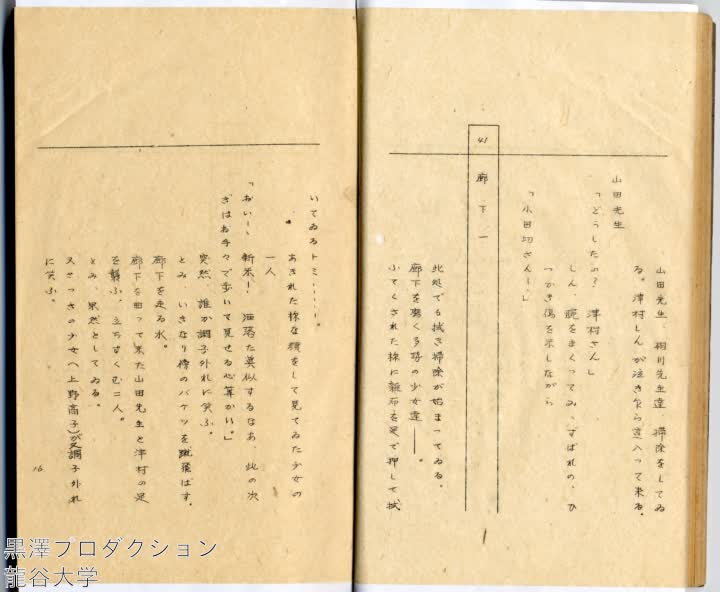 山田先生、相川先生達、掃除をしてゐ
る。津村しんが泣き乍ら這入って来る。
山田先生
「どうしたの？　津村さん」
しん、腕をまくってみゝずばれの、ひ
っかき傷を示しながら
「小田切さんー」
41　廊下一
此処でも拭き掃除が始まってゐる。
廊下を磨く多勢の少女達――。
ふてくされた様に雑布を足で押して拭
いてゐるトミ・・・・。
あきれた様な顔をして見てゐた少女の
一人
「おいー、新米！　洒落た真似するなあ、此の次
ぎはお手々で歩いて見せる心算かい。」
突然、誰か調子外れに笑ふ。
とみ、いきなり傍のバケツを蹴飛ばす。
廊下を走る水。
廊下を曲って来た山田先生と津村の足
を襲ふ。立ちすくむ二人。
とみ、呆然としてゐる。
又さっきの少女（上野高子）が又調子外れ
に笑ふ。
16
黒澤プロダクション
龍谷大学